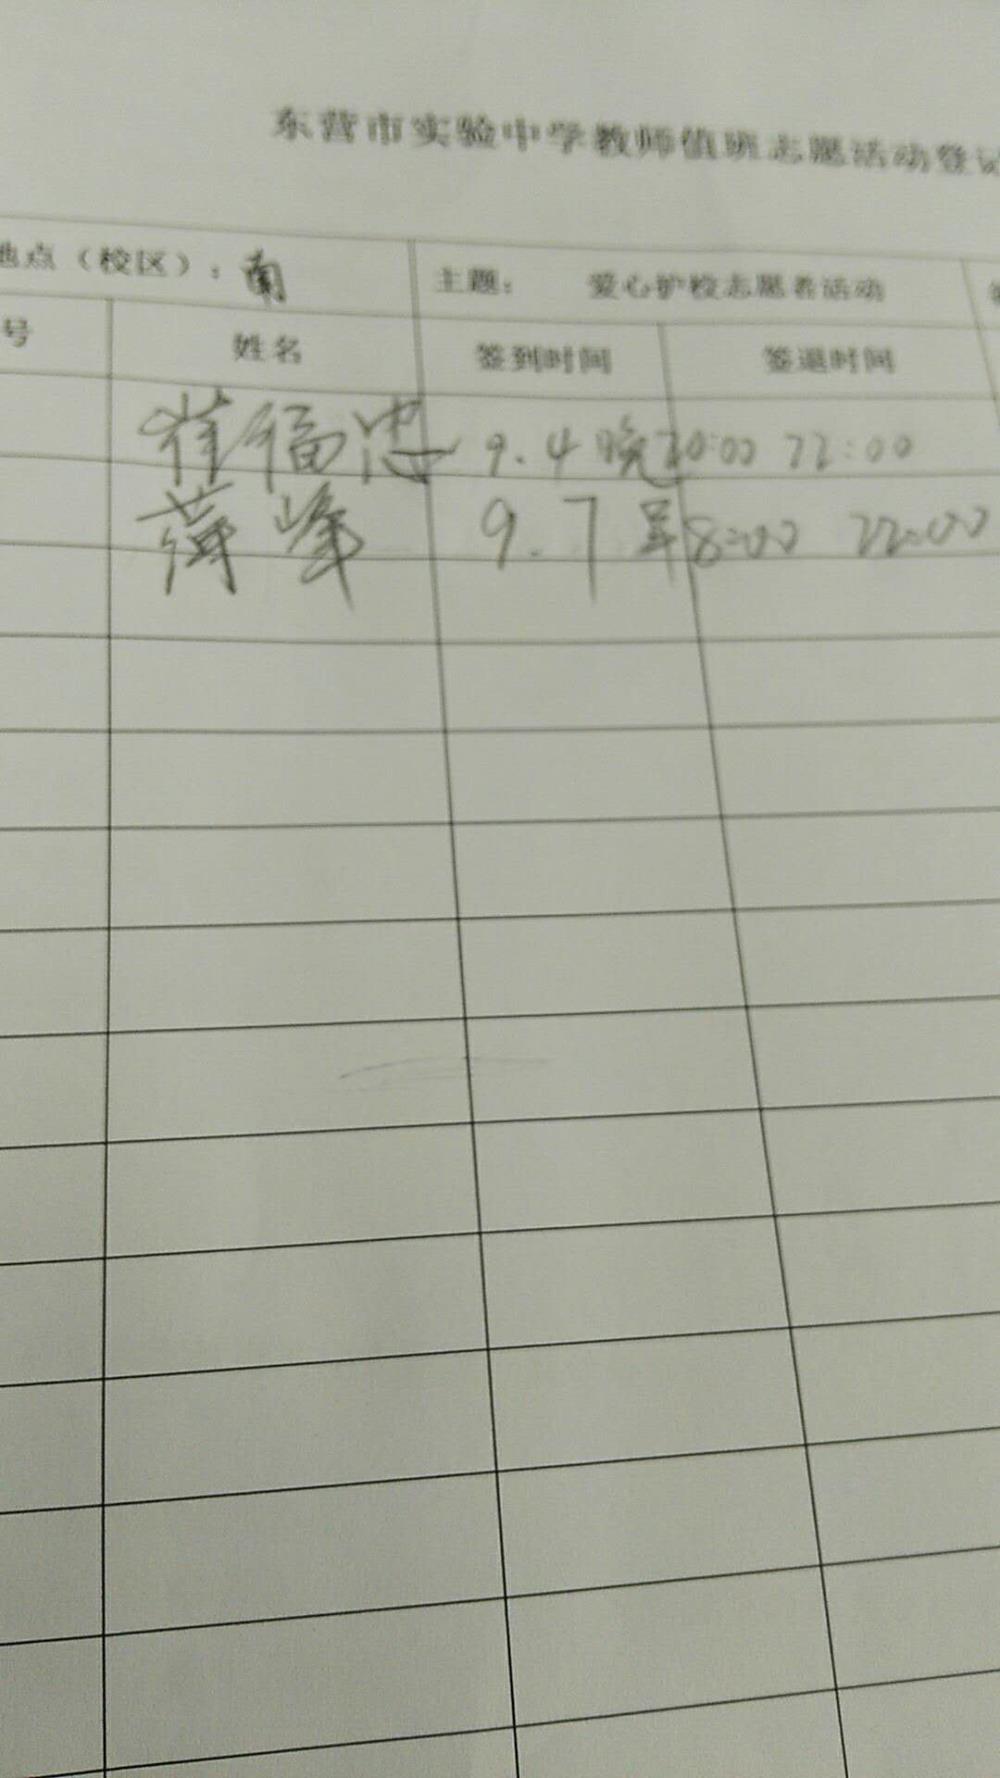 东营市实验中学教师值班志愿活动登记
地点（校区）：南 主题： 爱心护校志愿者活动
号 姓名 签到时间 签退时间
崔福忠 9.4 晚20:00 22:00
薄峰 9.7 早8:00 22:00